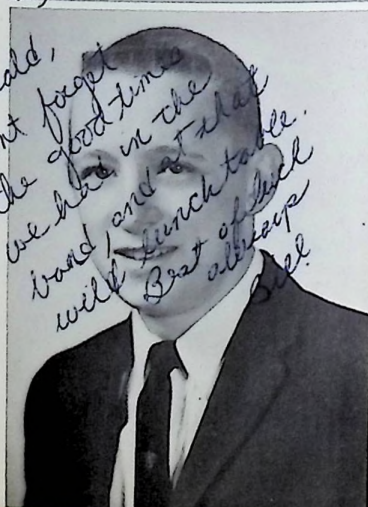 ald,
nt forget
the good times
we had in the
band, and at that
wild lunch table.
Best of luck
always
Bill